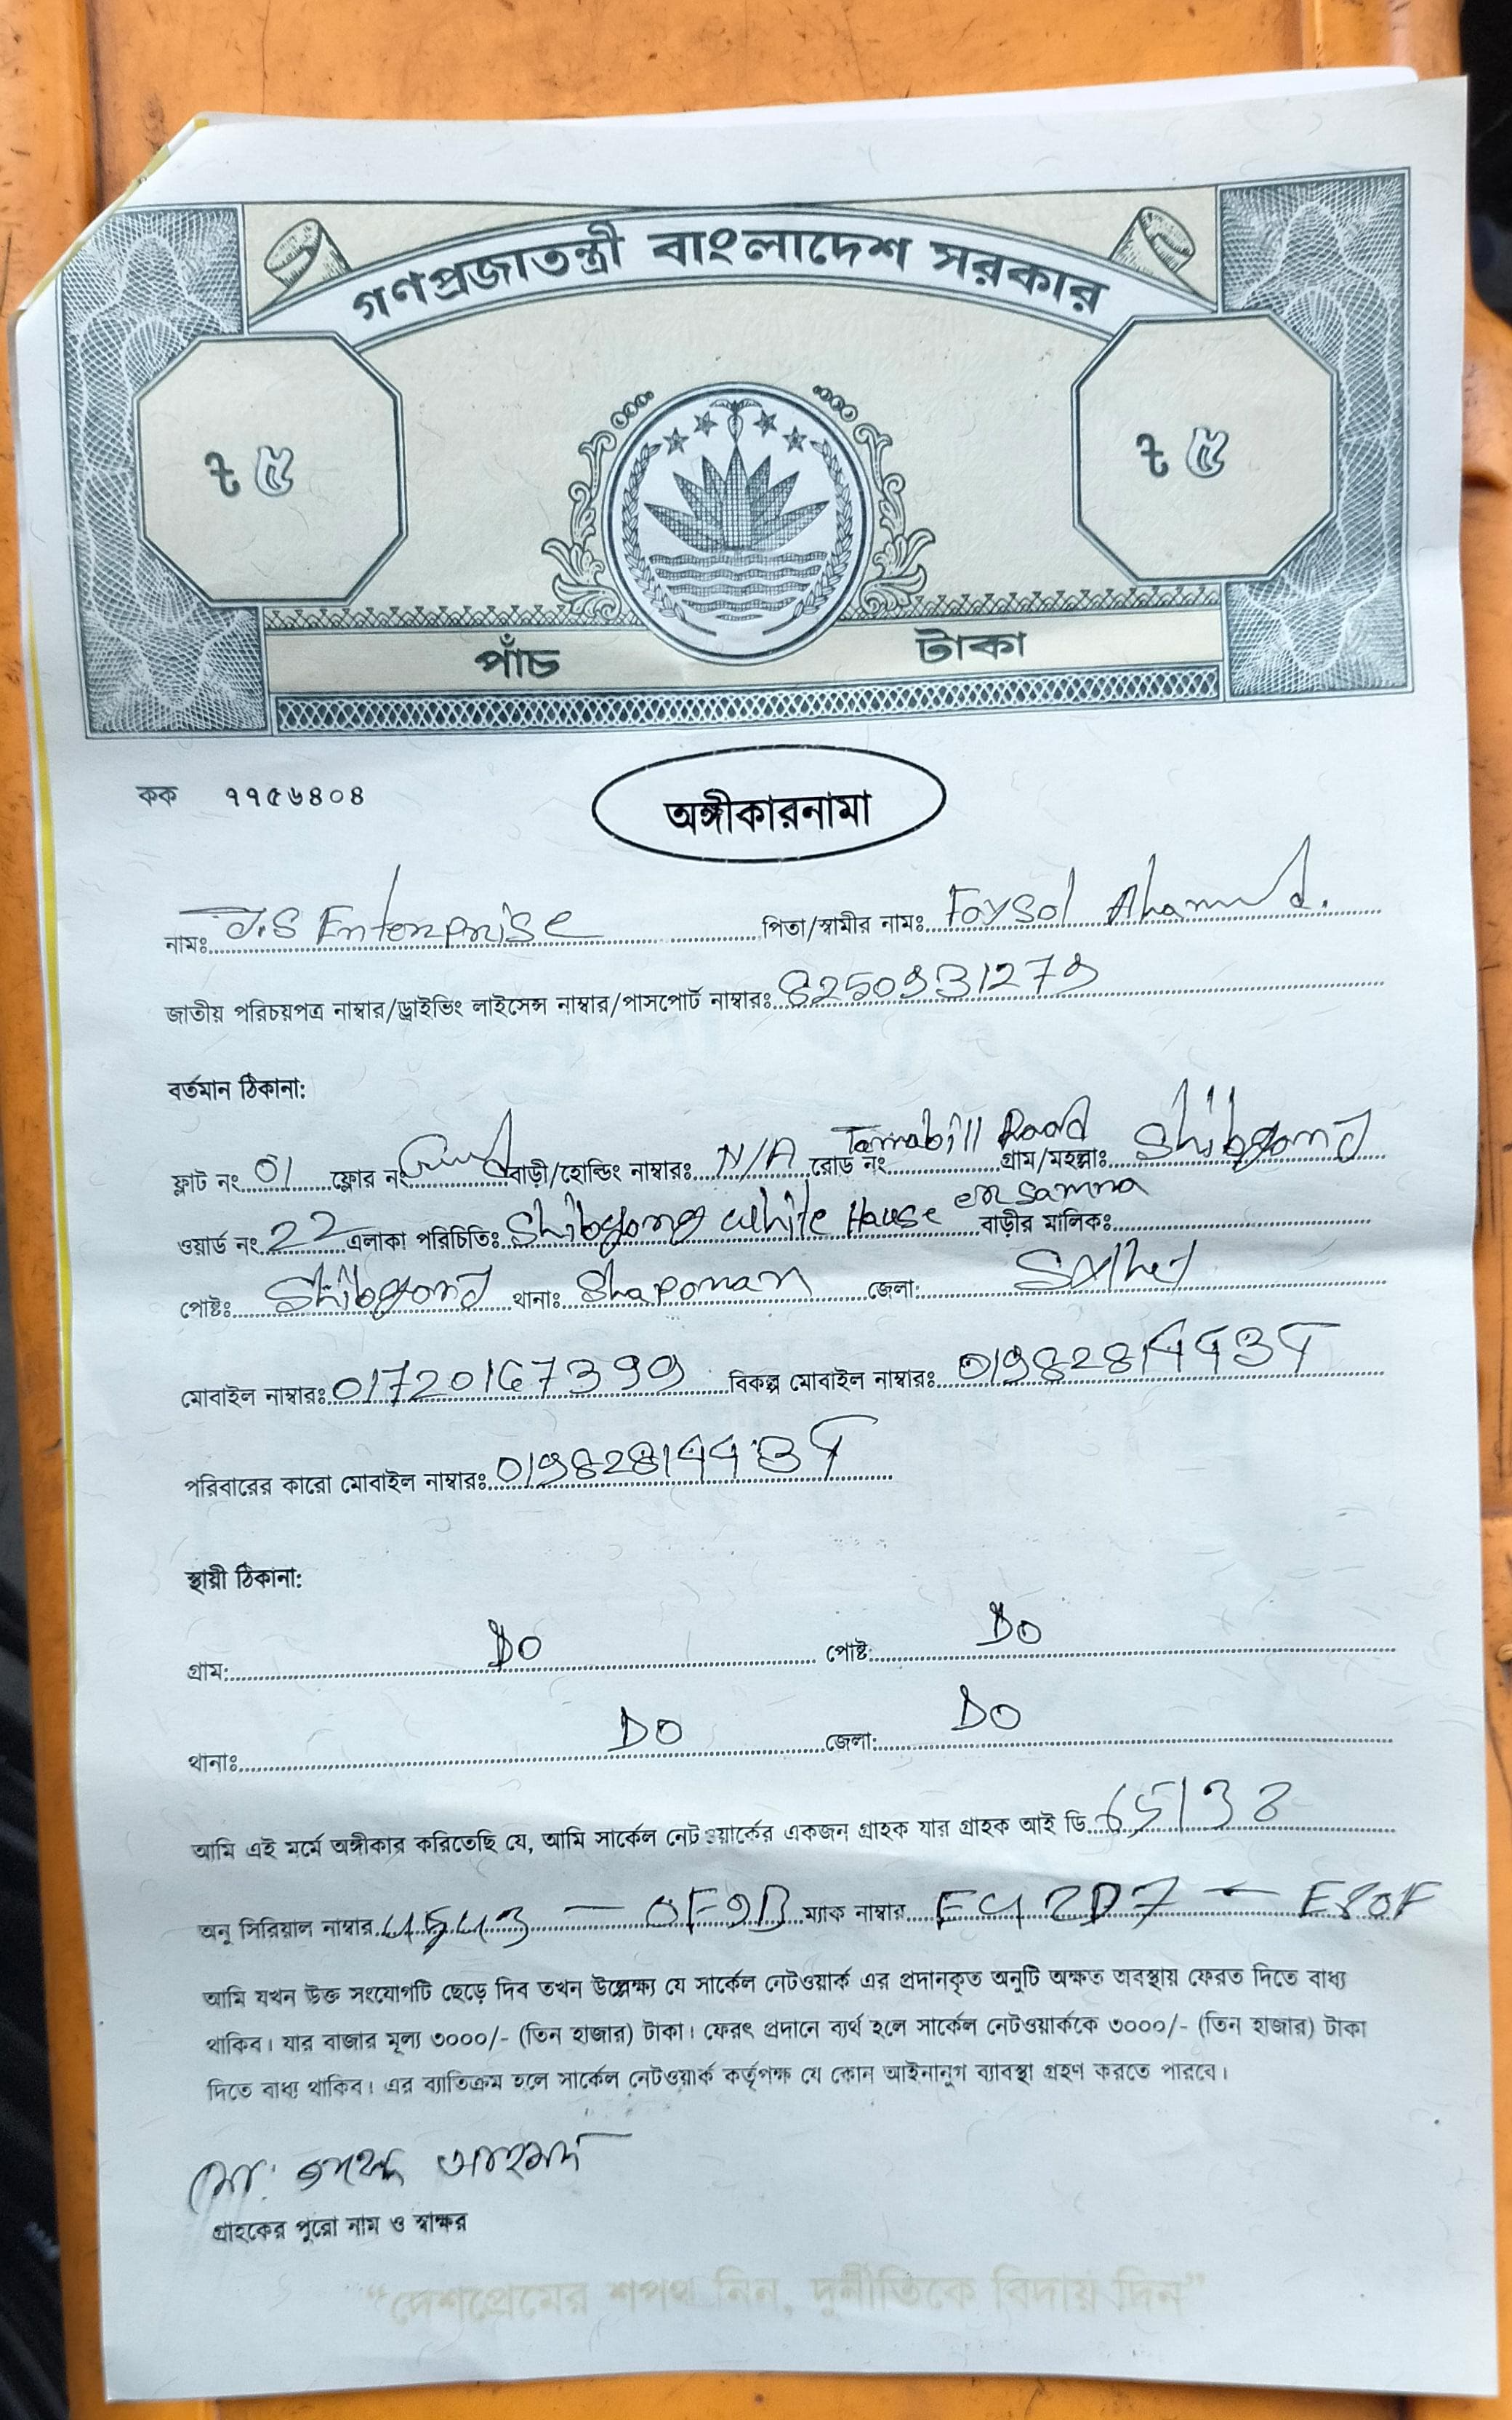 গণপ্রজাতন্ত্রী বাংলাদেশ সরকার
৳ ৫ ৳ ৫
পাঁচ টাকা
কক ৭৭৫৬৪০৪
অঙ্গীকারনামা
নামঃ J.S Enterprise পিতা/স্বামীর নামঃ Foysol Ahamed.
জাতীয় পরিচয়পত্র নাম্বার/ড্রাইভিং লাইসেন্স নাম্বার/পাসপোর্ট নাম্বারঃ 8250931279
বর্তমান ঠিকানা:
ফ্লাট নং 01 ফ্লোর নং বাড়ী/হোল্ডিং নাম্বারঃ N/A রোড নং Tamabill Road গ্রাম/মহল্লাঃ Shibgonj
ওয়ার্ড নং 22 এলাকা পরিচিতিঃ Shibgong White House er samna বাড়ীর মালিকঃ
পোষ্টঃ Shibgonj থানাঃ Shaporan জেলা: Sylhet
মোবাইল নাম্বারঃ 01720167399 বিকল্প মোবাইল নাম্বারঃ
পরিবারের কারো মোবাইল নাম্বারঃ
স্থায়ী ঠিকানা:
গ্রাম: DO পোষ্ট: DO
থানাঃ DO জেলা: DO
আমি এই মর্মে অঙ্গীকার করিতেছি যে, আমি সার্কেল নেটওয়ার্কের একজন গ্রাহক যার গ্রাহক আই ডি
অনু সিরিয়াল নাম্বার – 0F9B ম্যাক নাম্বার F42D7 – E80F
আমি যখন উক্ত সংযোগটি ছেড়ে দিব তখন উল্লেক্ষ্য যে সার্কেল নেটওয়ার্ক এর প্রদানকৃত অনুটি অক্ষত অবস্থায় ফেরত দিতে বাধ্য
থাকিব। যার বাজার মূল্য ৩০০০/- (তিন হাজার) টাকা। ফেরৎ প্রদানে ব্যর্থ হলে সার্কেল নেটওয়ার্ককে ৩০০০/- (তিন হাজার) টাকা
দিতে বাধ্য থাকিব। এর ব্যাতিক্রম হলে সার্কেল নেটওয়ার্ক কর্তৃপক্ষ যে কোন আইনানুগ ব্যাবস্থা গ্রহণ করতে পারবে।
মো: আহমদ
গ্রাহকের পুরো নাম ও স্বাক্ষর
“দেশপ্রেমের শপথ নিন, দুর্নীতিকে বিদায় দিন”